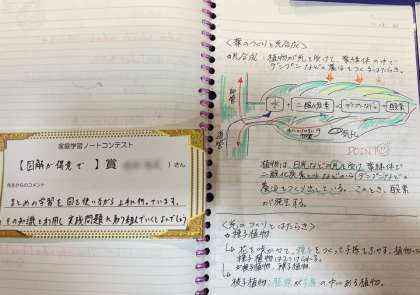 家庭学習ノートコンテスト
【図解が得意で 】賞
)さん
先生からのコメント
まとめの学習を図を使いながら上手に行っています。
その知識を利用し実践問題に取り組んでいくとよいでしょう
<葉のつくりと光合成>
光合成: 植物が光を受けて、葉緑体の中で
デンプンなどの養分をつくるはたらき。
水 + 二酸化炭素 → デンプンなど + 酸素
道管
気孔
POINT
植物は、日光などの光を受け葉緑体で
二酸化炭素と水などからデンプンなどの
養分をつくり出している。このとき、酸素
が発生する。
<花のつくりとはたらき>
種子植物
花を咲かせて、種子をつくって子孫をふやす。植物
被子植物、裸子植物
被子植物: 胚珠が子房の中にある植物。